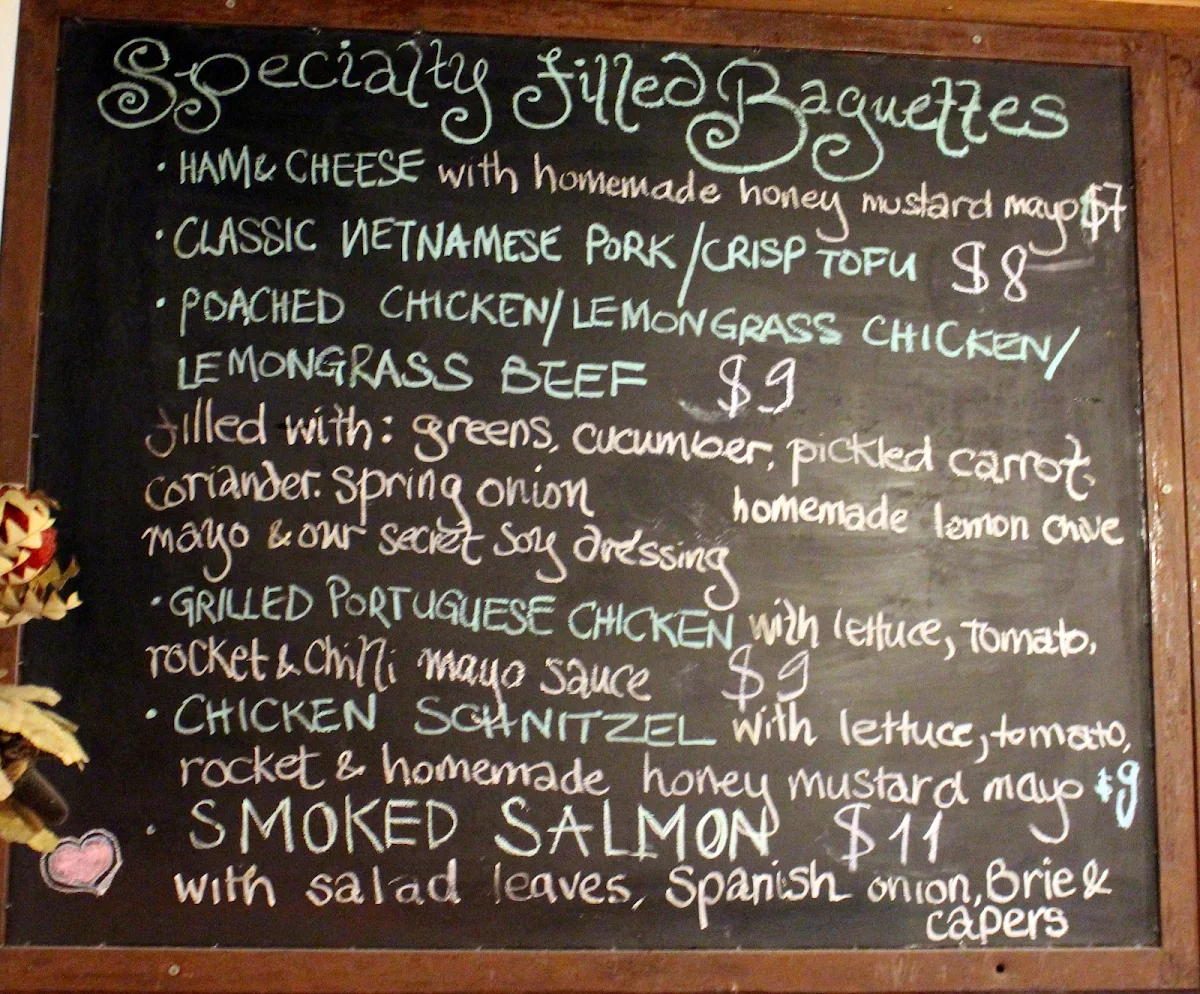 Specialty filled Baguettes
· HAM & CHEESE with homemade honey mustard mayo $7
· CLASSIC VIETNAMESE PORK/CRISP TOFU $8
· POACHED CHICKEN/LEMONGRASS CHICKEN/
LEMONGRASS BEEF $9
filled with: greens, cucumber, pickled carrot,
coriander. spring onion homemade lemon chive
mayo & our secret soy dressing
· GRILLED PORTUGUESE CHICKEN with lettuce, tomato,
rocket & chilli mayo sauce $9
· CHICKEN SCHNITZEL with lettuce, tomato,
rocket & homemade honey mustard mayo $9
· SMOKED SALMON $11
with salad leaves, Spanish onion, Brie &
capers